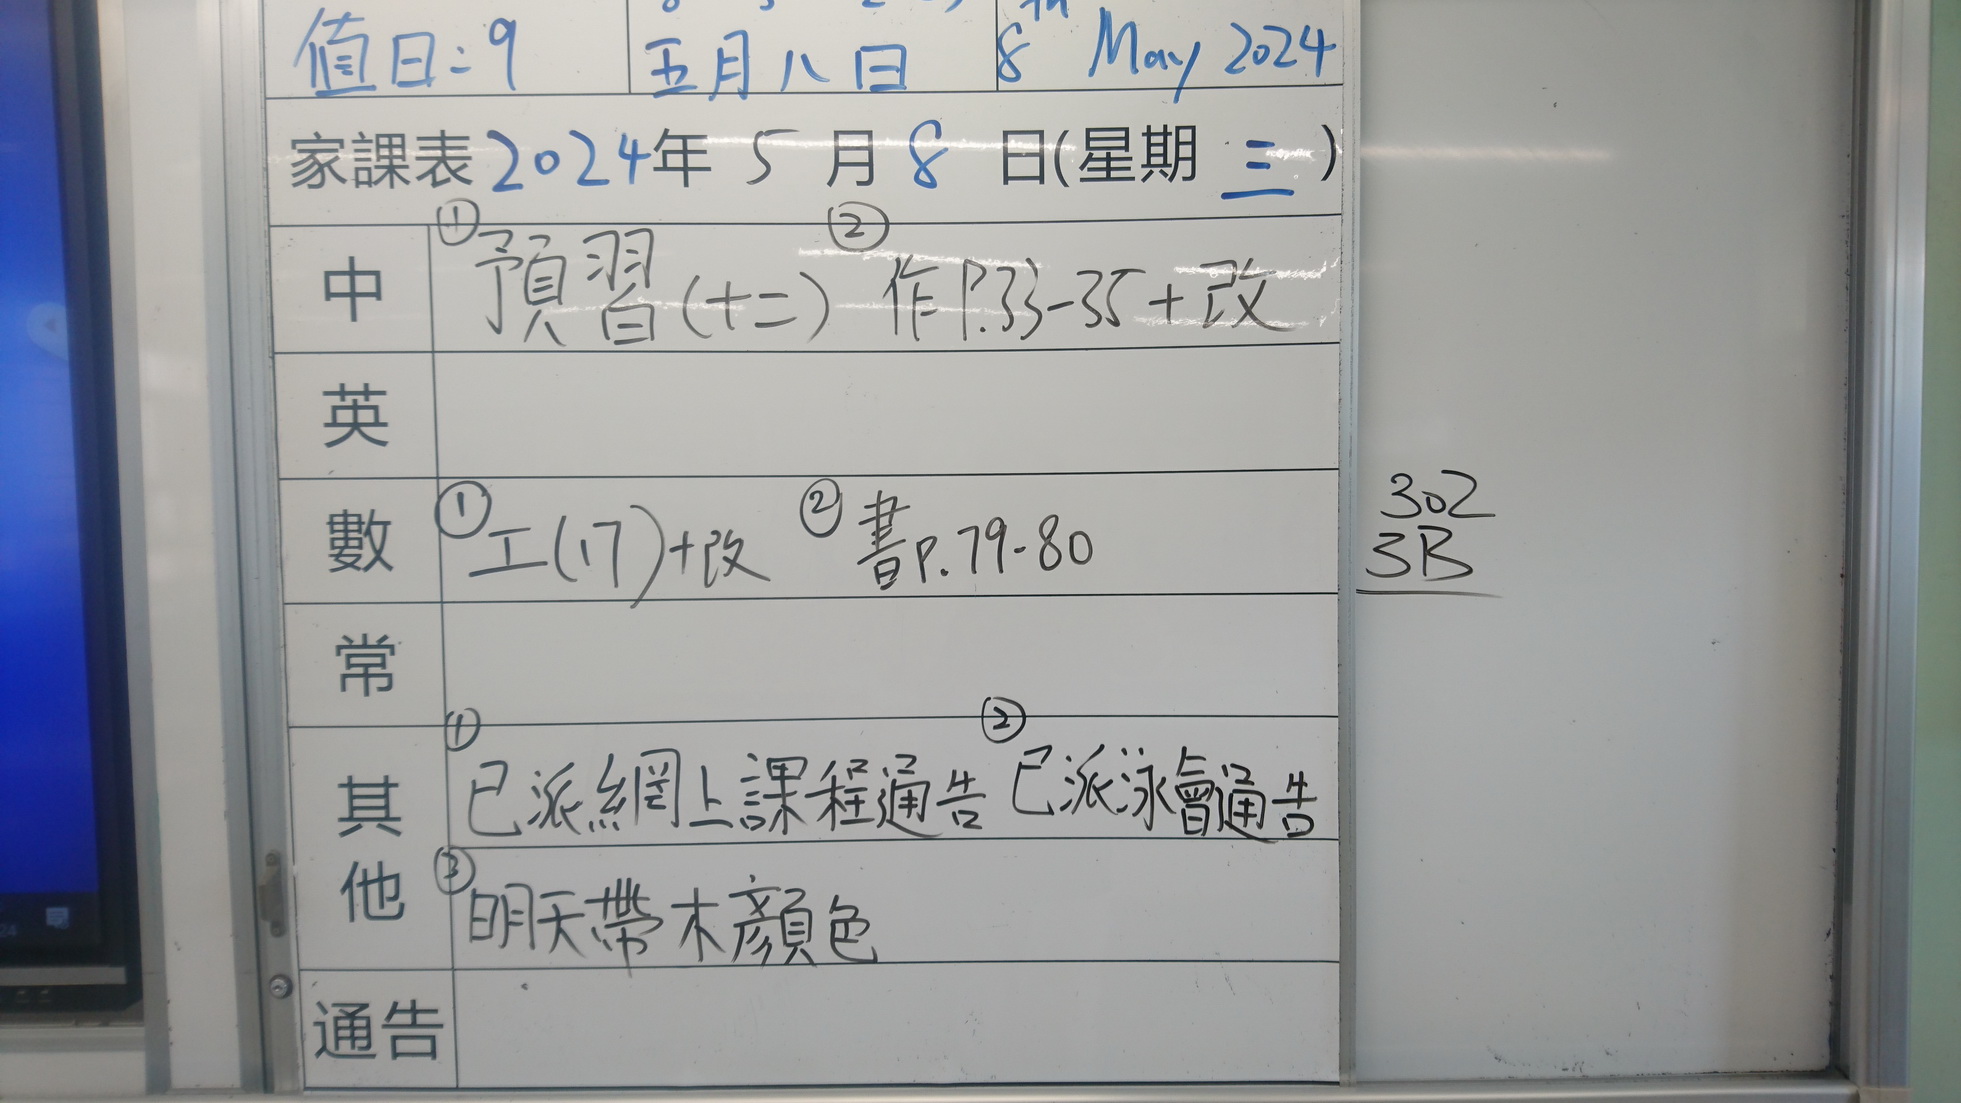 值日:9 五月八日 8th May 2024
家課表2024年 5 月 8 日(星期 三 )
中 ①預習(十二) ②作P.33-35+改
英
數 ①工(17)+改 ②書p.79-80
302
3B
常
其他 ①已派網上課程通告 ②已派泳會通告
③明天帶木顏色
通告